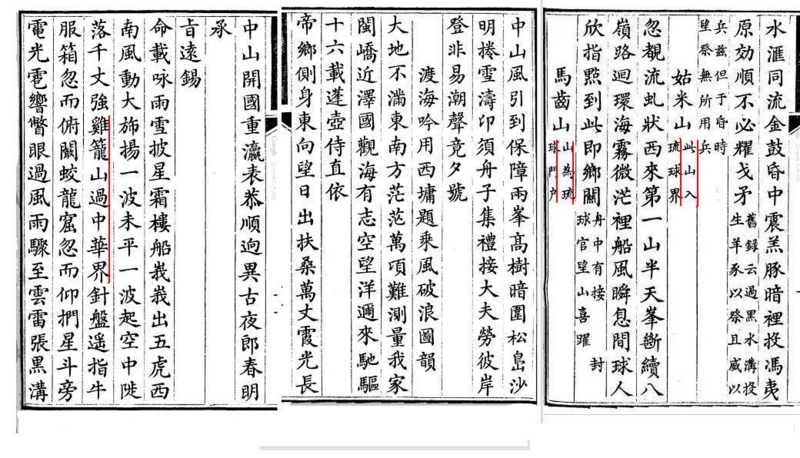 水滙同流金鼓昏中震羔豚暗裡投馮夷
原効順不必耀戈矛舊錄云過黑水溝投生羊豕以祭且威以
兵茲但于昏時望祭無所用兵
姑米山此山入琉球界
忽覩流虬狀西來第一山半天峯斷續八
嶺路迴環海霧微茫裡船風瞬息間球人
欣指點到此即鄉關舟中有接封球官望山喜躍
馬齒山山為琉球門户
中山風引到保障兩峯高樹暗圍松島沙
明捲雪濤卬須舟子集禮接大夫勞彼岸
登非易潮聲竟夕號
渡海吟用西墉題乘風破浪圖韻
大地不滿東南方茫茫萬頃難測量我家
閩嶠近澤國觀海有志空望洋邇來馳驅
十六載蓬壺侍直依
帝鄉側身東向望日出扶桑萬丈霞光長
中山開國重瀛表恭順逈異古夜郎春明
承
旨遠錫
命載咏雨雪披星霜樓船峩峩出五虎西
南風動大斾揚一波未平一波起空中陡
落千丈強雞籠山過中華界針盤遙指牛
服箱忽而俯闞蛟龍窟忽而仰捫星斗旁
電光雹響瞥眼過風雨驟至雲雷張黑溝